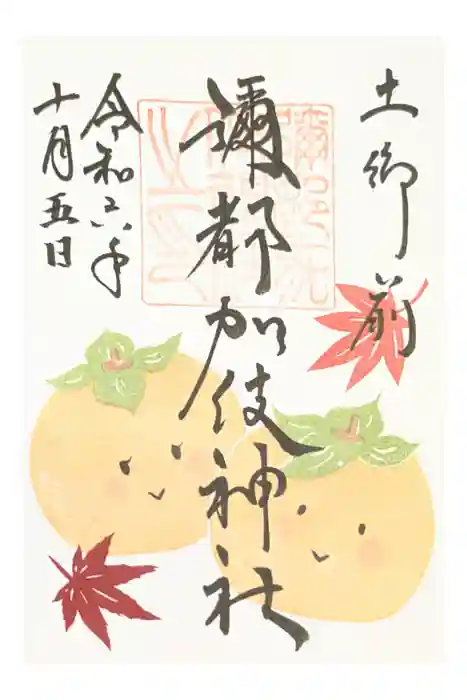 土御前
彌都加伎神社
令和六年
十月五日